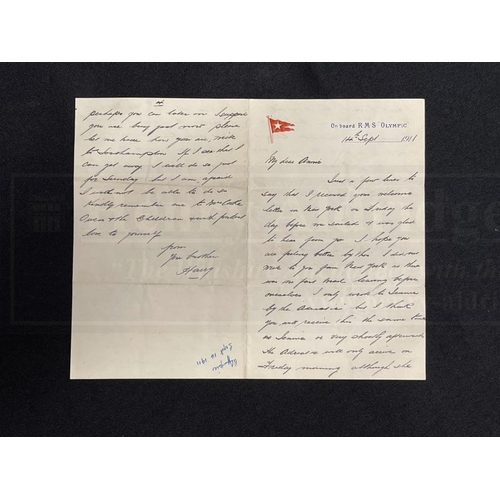 On board R.M.S. "OLYMPIC"
14th Sept 1911
My dear Annie
Just a few lines to
say that I received your welcome
letter in New York on Friday the
day before we sailed & was glad
to hear from you I hope you
are feeling better by this I did not
write to you from New York as there
was no fast mail leaving before
ourselves I only wrote to
by the Adriatic but I think
you will receive this the same time
as or very shortly afterwards
the Adriatic will only arrive on
Friday morning although she
4
perhaps you can later on I suppose
you are busy just now please
let me know how you are write
to Southampton If I see that I
can get away I will do so just
for Sunday but I am afraid
I will not be able to do so
Kindly remember me to
Owen & the Children with fondest
love to yourself
from
Your brother
Harry
Olympic
Sept 14 1911